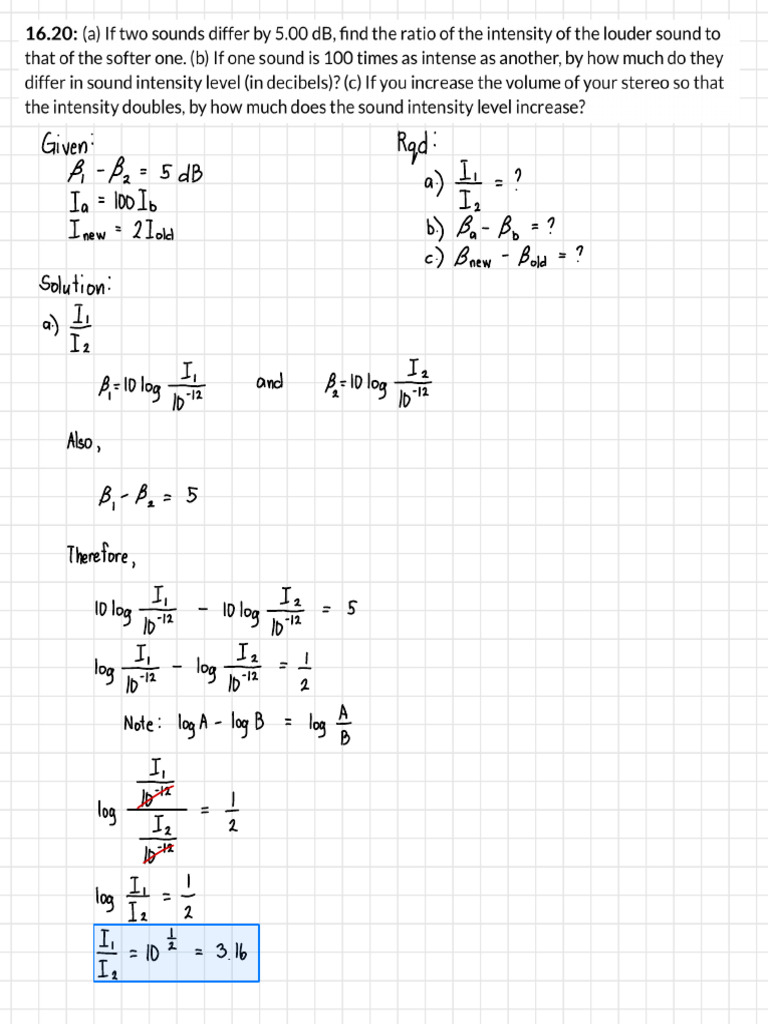 16.20: (a) If two sounds differ by 5.00 dB, find the ratio of the intensity of the louder sound to
that of the softer one. (b) If one sound is 100 times as intense as another, by how much do they
differ in sound intensity level (in decibels)? (c) If you increase the volume of your stereo so that
the intensity doubles, by how much does the sound intensity level increase?
Given:
β₁ - β₂ = 5 dB
Iₐ = 100 I_b
I_new = 2 I_old
Rqd:
a.) I₁/I₂ = ?
b.) βₐ - β_b = ?
c.) β_new - β_old = ?
Solution:
a.) I₁/I₂
β₁ = 10 log I₁/10⁻¹² and β₂ = 10 log I₂/10⁻¹²
Also,
β₁ - β₂ = 5
Therefore,
10 log I₁/10⁻¹² - 10 log I₂/10⁻¹² = 5
log I₁/10⁻¹² - log I₂/10⁻¹² = 1/2
Note: log A - log B = log A/B
log (I₁/10⁻¹²)/(I₂/10⁻¹²) = 1/2
log I₁/I₂ = 1/2
I₁/I₂ = 10^(1/2) = 3.16